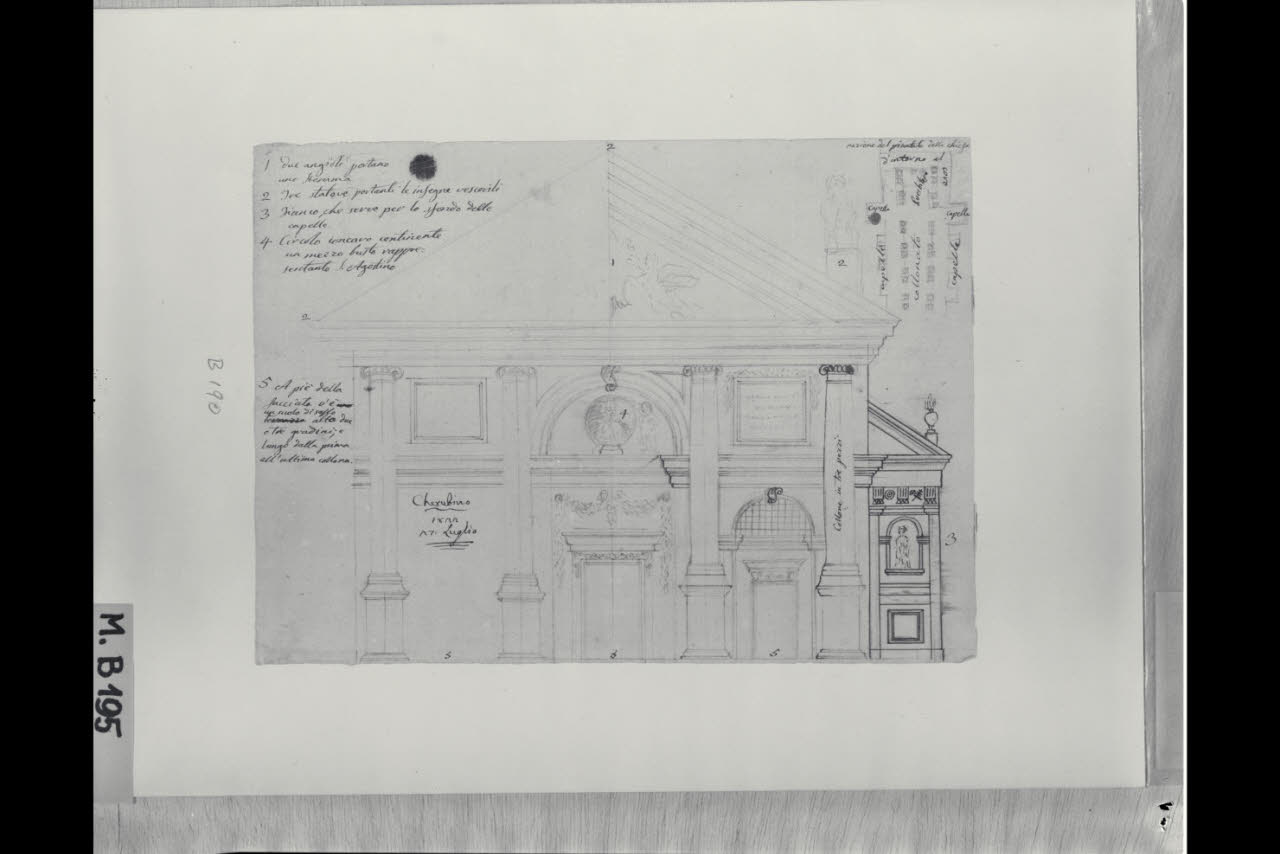 1 due angioli portano
una
2 Tre statove portanti le insegne vescovili
3 Fianco che serve per lo sfondo delle
capelle
4 Circolo concavo continente
un mezzo busto rappre-
sentante S. Agostino
2
2
1
2
4
5 A piè della
facciata v'è
un
alto due
o tre gradini, e
lungo dalla prima
all'ultima collona.
Cherubino
17. Luglio
Collone in tre pezzi
3
5
6
5
della chiesa
d'interno al
capella
capella
capelle
collonato
capelle
B 190
M. B 195